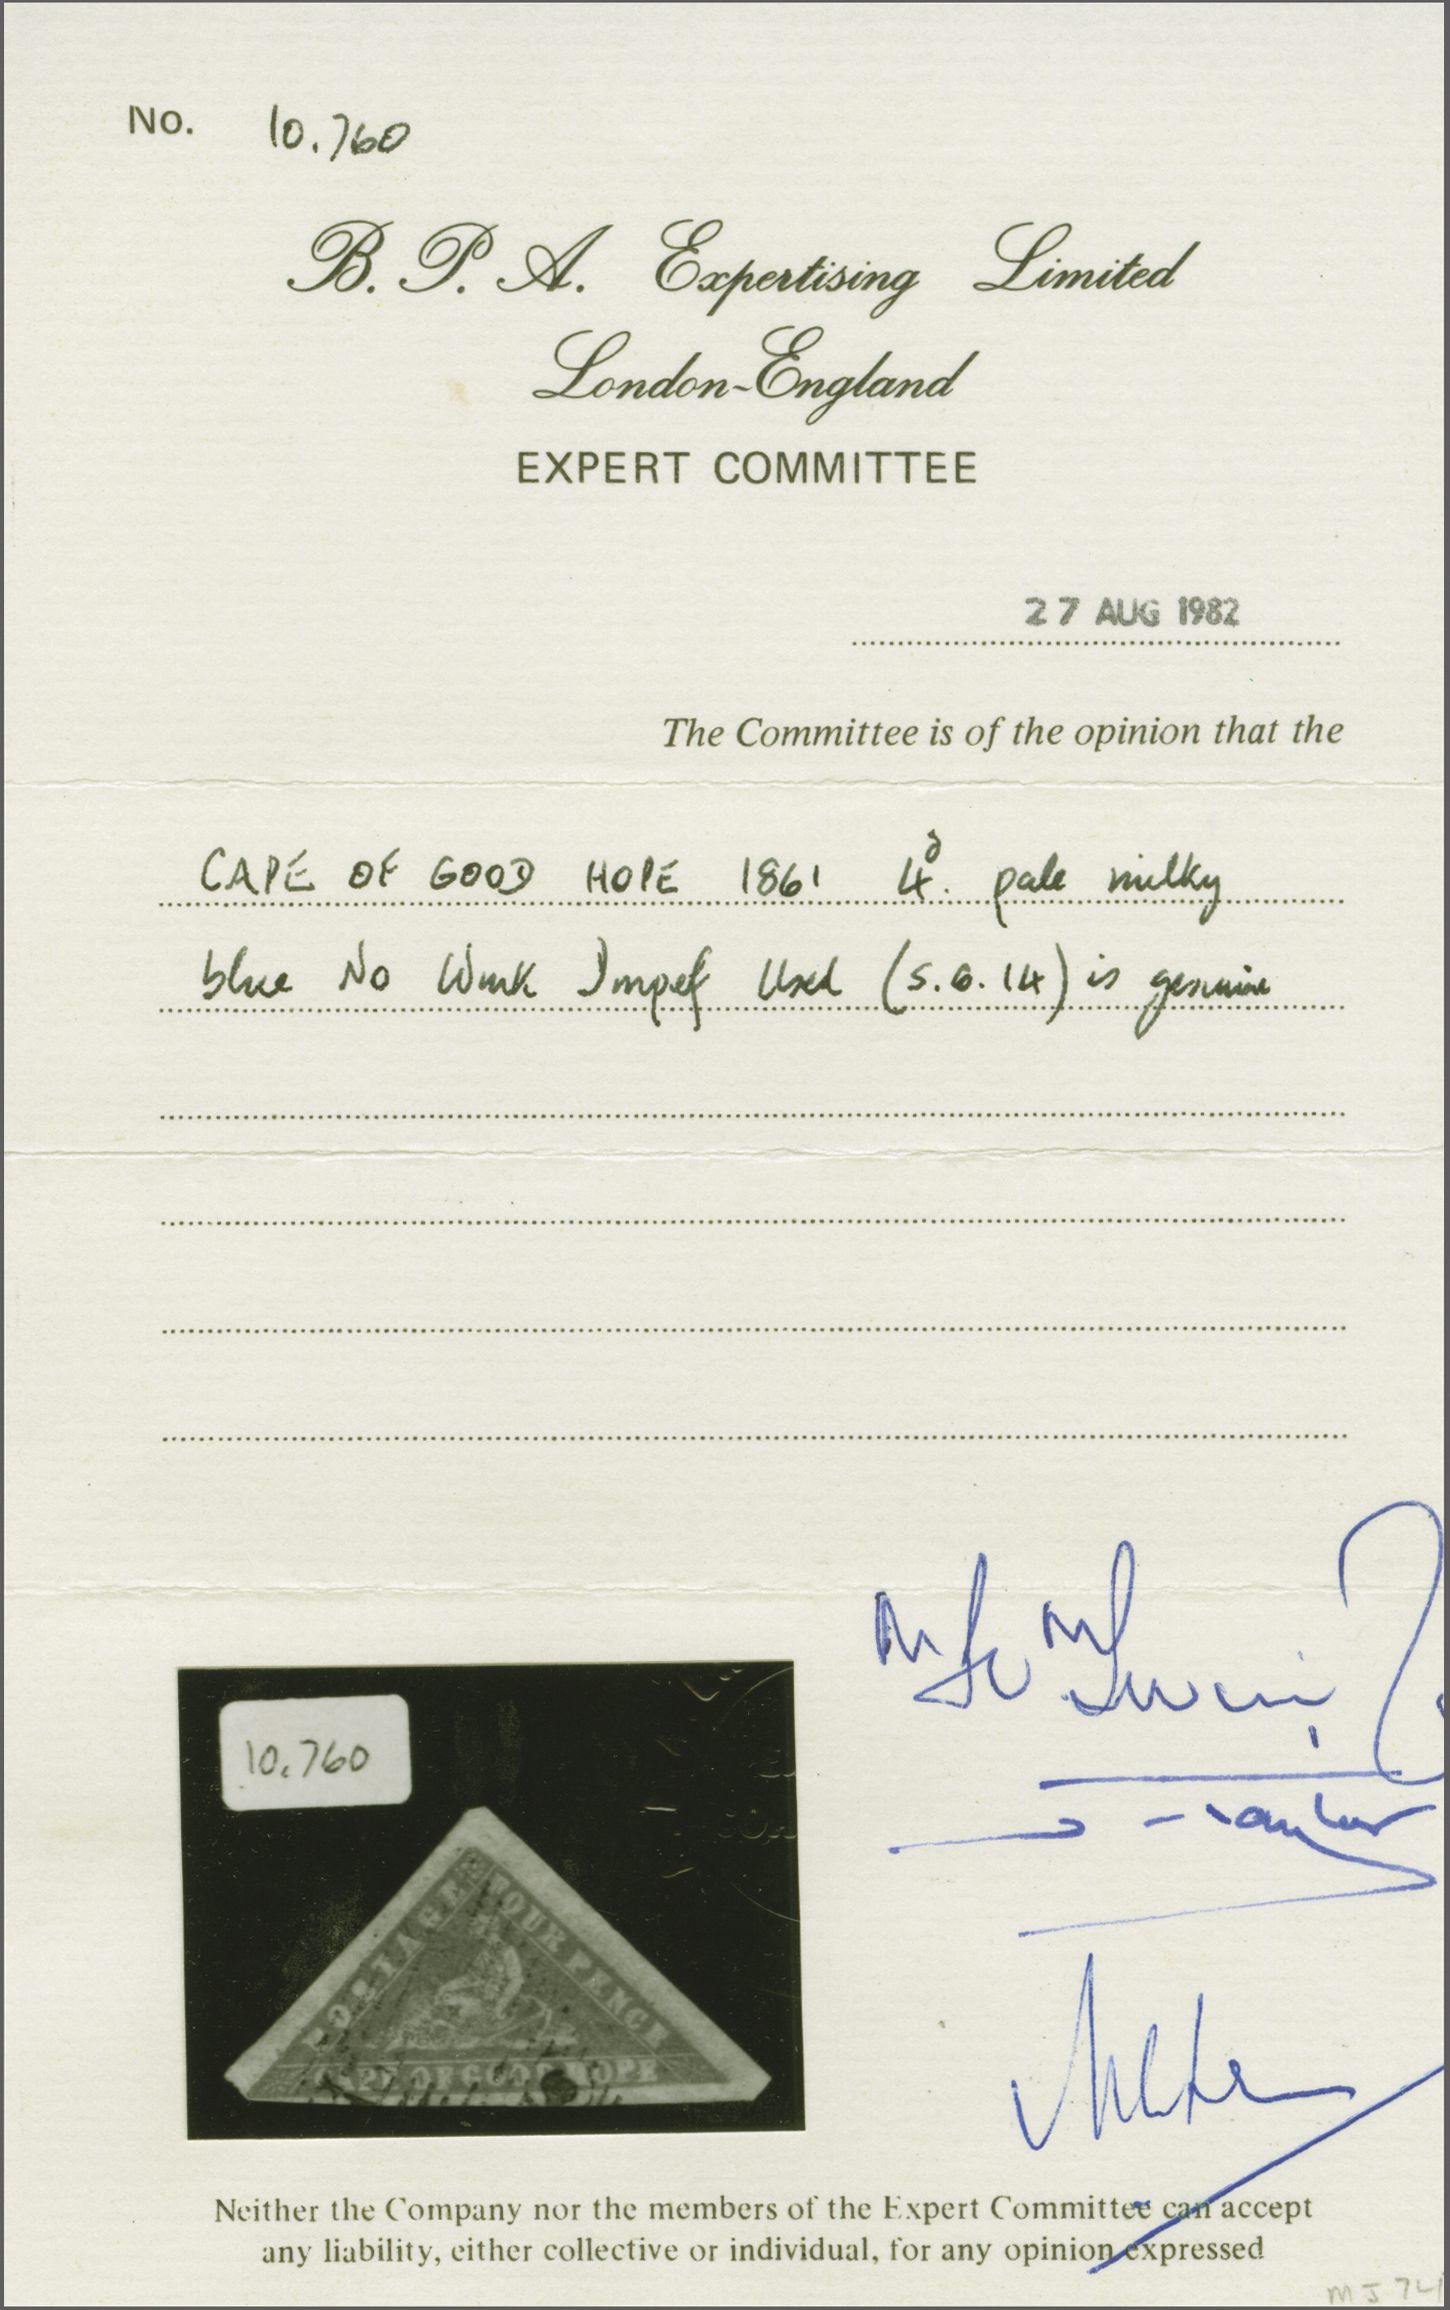 No. 10.760
B. P. A. Expertising Limited
London-England
EXPERT COMMITTEE
27 AUG 1982
The Committee is of the opinion that the
CAPE OF GOOD HOPE 1861 4d. pale milky
blue No Wmk Imperf Used (S.G. 14) is genuine
10.760
POSTAGE
FOUR PENCE
CAPE OF GOOD HOPE
Neither the Company nor the members of the Expert Committee can accept
any liability, either collective or individual, for any opinion expressed
MJ